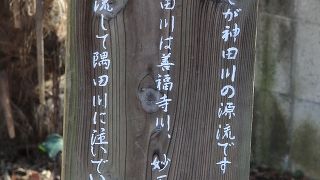 が神田川の源流です
田川は善福寺川、妙
流して隅田川に注いでい